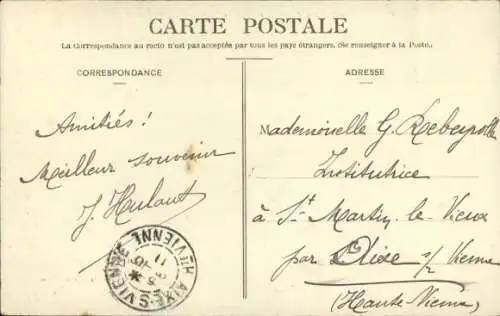 CARTE POSTALE
La Correspondance au recto n'est pas acceptée par tous les pays étrangers. (Se renseigner à la Poste.)
CORRESPONDANCE
ADRESSE
Amitiés !
Meilleur souvenir
J. Hulaut
Mademoiselle G. Rebeyrolle
Institutrice
à St Martin le Vieux
par Aixe s/ Vienne
(Haute Vienne)
AIXE-S-VIENNE
Hte VIENNE